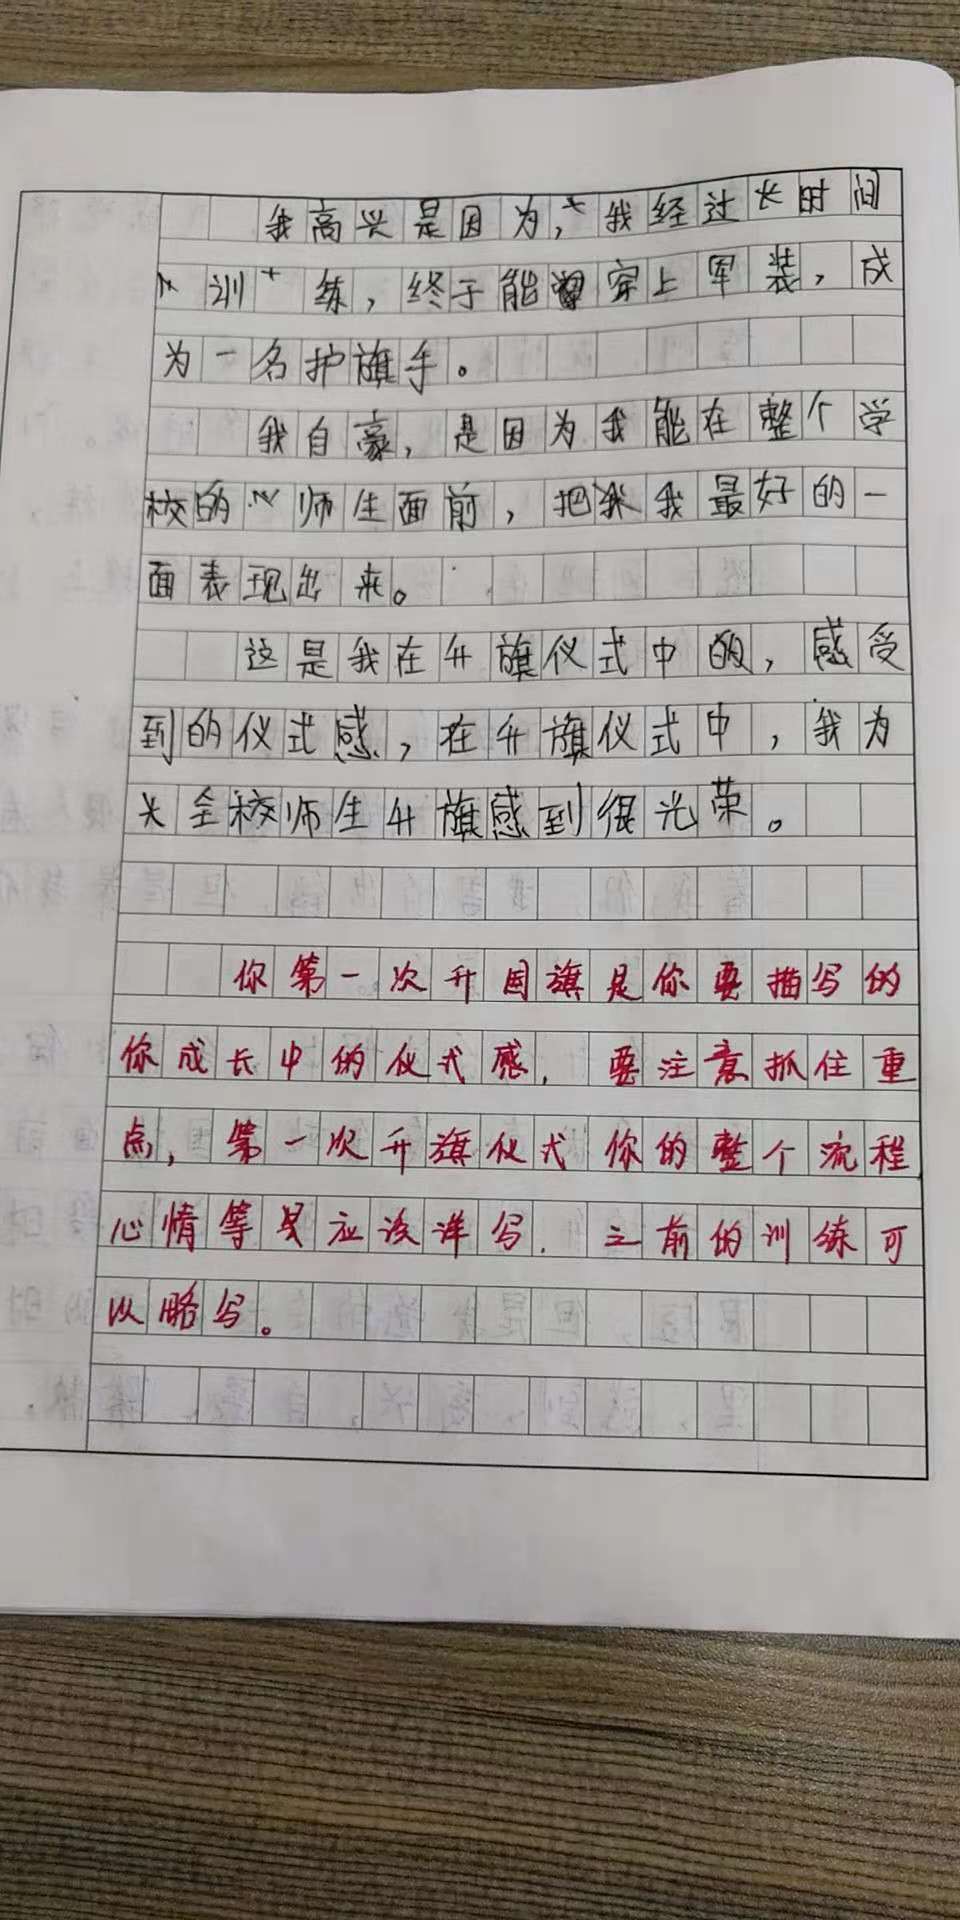 我高兴是因为,我经过长时间
训练,终于能穿上军装,成
为一名护旗手。
我自豪,是因为我能在整个学
校的师生面前,把我最好的一
面表现出来。
这是我在升旗仪式中的,感受
到的仪式感,在升旗仪式中,我为
全校师生升旗感到很光荣。
你第一次升国旗是你要描写的
你成长中的仪式感. 要注意抓住重
点,第一次升旗仪式你的整个流程
心情等是应该详写. 之前的训练可
以略写。